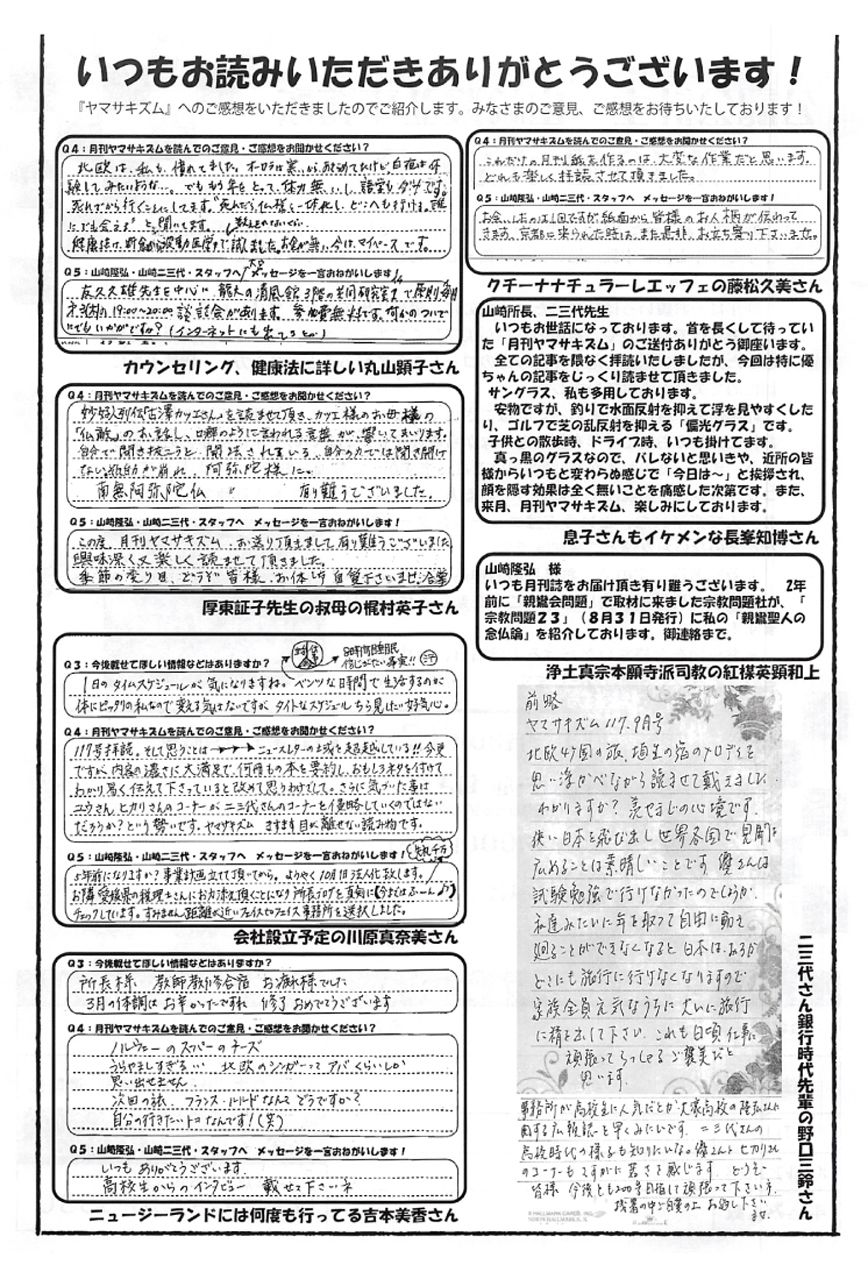 いつもお読みいただきありがとうございます！
『ヤマサキズム』へのご感想をいただきましたのでご紹介します。みなさまのご意見、ご感想をお待ちいたしております！
Q4：月刊ヤマサキズムを読んでのご意見・ご感想をお聞かせください？
北欧は、私も、憧れてました。オーロラは寒いから
死んでから行くことにしてます。
Q5：山﨑隆弘・山﨑二三代・スタッフへ メッセージを一言おねがいします！
友久久雄先生を中心に
の19:00〜20:00 談話会があります。参加費無料です。何かのついで
にでもいかがですか？(インターネットにも出てるとか)
カウンセリング、健康法に詳しい丸山顕子さん
Q4：月刊ヤマサキズムを読んでのご意見・ご感想をお聞かせください？
を読ませて頂き、カツエ様のお母様の
南無阿弥陀仏 有り難うございました。
Q5：山﨑隆弘・山﨑二三代・スタッフへ メッセージを一言おねがいします！
この度、月刊ヤマサキズム お送り頂きまして有り難うございました
興味深く又楽しく読ませて頂きました。
季節の変り目、どうぞ皆様、お体
厚東証子先生の叔母の梶村英子さん
Q3：今後載せてほしい情報などはありますか？
8時間睡眠
信じがたい事実!!
1日のタイムスケジュールが気になりますね。ベンツな時間で生活するのが
体にピッタリの私なので変える気はないですが、タイトなスケジュールちら見したい好奇心。
Q4：月刊ヤマサキズムを読んでのご意見・ご感想をお聞かせください？
117号拝読。そして思うことは ニュースレターの域を超越している!! 今更
ですが、内容の濃さに大満足で、何冊もの本を要約し、おもしろネタを付けて
わかり易く伝えて下さっていると改めて思うわけでして。さらに気づいた事は
ユウさん、ヒカリさんのコーナーが二三代さんのコーナーを侵略していくのではない
だろうか？という勢いです。ヤマサキズム ますます目が離せない読み物です。
Q5：山﨑隆弘・山﨑二三代・スタッフへ メッセージを一言おねがいします！
5年前になりますか？事業計画立てて頂いてから。ようやく10月1日法人化致します。
お隣愛媛県の税理士さんにお力添え頂くことになり 所長ブログを真剣に
チェックしています。すみません 距離が近いフェイスtoフェイス事務所を選択しました。
会社設立予定の川原真奈美さん
Q3：今後載せてほしい情報などはありますか？
所長様 教師教修合宿 お疲れ様でした
3月の体調はお辛かったですね 修了おめでとうございます
Q4：月刊ヤマサキズムを読んでのご意見・ご感想をお聞かせください？
ノルウェーのスーパーのチーズ
うらやましすぎる… 北欧のシンガーって アバくらいしか
思い出せません
次回の旅 フランス・ルルドなんて どうですか？
自分の行きたいトコなんです！(笑)
Q5：山﨑隆弘・山﨑二三代・スタッフへ メッセージを一言おねがいします！
いつも ありがとうございます
高校生からのインタビュー 載せて下さいネ
ニュージーランドには何度も行ってる吉本美香さん
Q4：月刊ヤマサキズムを読んでのご意見・ご感想をお聞かせください？
これだけの月刊紙を作るのは、大変な作業だと思います。
どれも楽しく拝読させて頂きました。
Q5：山﨑隆弘・山﨑二三代・スタッフへ メッセージを一言おねがいします！
お会いしたのは1回ですが紙面から皆様のお人柄が伝わって
きます。京都に来られた時は、また是非、お立ち寄り下さいませ。
クチーナナチュラーレエッフェの藤松久美さん
山﨑所長、二三代先生
いつもお世話になっております。首を長くして待ってい
た「月刊ヤマサキズム」のご送付ありがとう御座います。
全ての記事を隈なく拝読いたしましたが、今回は特に優
ちゃんの記事をじっくり読ませて頂きました。
サングラス、私も多用しております。
安物ですが、釣りで水面反射を抑えて浮を見やすくした
り、ゴルフで芝の乱反射を抑える「偏光グラス」です。
子供との散歩時、ドライブ時、いつも掛けてます。
真っ黒のグラスなので、バレないと思いきや、近所の皆
様からいつもと変わらぬ感じで「今日は〜」と挨拶され、
顔を隠す効果は全く無いことを痛感した次第です。また、
来月、月刊ヤマサキズム、楽しみにしております。
息子さんもイケメンな長峯知博さん
山﨑隆弘 様
いつも月刊誌をお届け頂き有り難うございます。 2年
前に「親鸞会問題」で取材に来ました宗教問題社が、「
宗教問題23」（8月31日発行）に私の「親鸞聖人の
念仏論」を紹介しております。御連絡まで。
浄土真宗本願寺派司教の紅楳英顕和上
前略
ヤマサキズム117.9月号
北欧4ヶ国の旅、埴生の宿のメロディを
思い浮かべながら読ませて戴きました
わかりますか？ 羨やましの心境です。
狭い日本を飛び出し世界各国で見聞を
広めることは素晴しいことです 優さんは
試験勉強で行けなかったのでしょうか、
私達みたいに年を取って自由に動き
廻ることができなくなると 日本は、おろか
どこにも旅行に行けなくなりますので
家族全員元気なうちに大いに旅行
に精を出して下さい。これも日頃仕事に
頑張ってらっしゃるご褒美だと
思います。
事務所が高校生に人気だとか大濠高校の隆弘さんに
関する広報誌も早くみたいです。二三代さんの
高校時代の様子も知りたいな。優さんとヒカリさん
のコーナーもさすがに若さを感じます どうぞ
皆様 今後とも200号目指して頑張って下さいネ
残暑の中ご自愛の上 お過し下さい
ませ。
二三代さん銀行時代先輩の野口三鈴さん